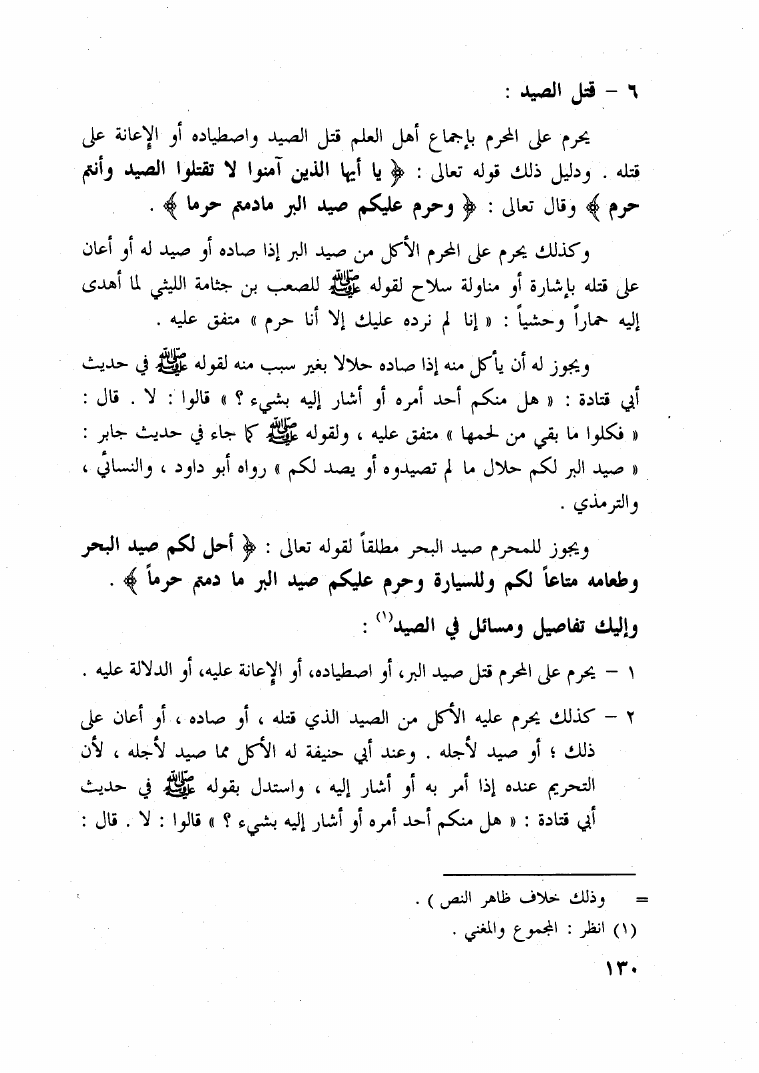 ٦ - قتل الصيد :
يحرم على المحرم بإجماع أهل العلم قتل الصيد واصطياده أو الإعانة على
قتله . ودليل ذلك قوله تعالى : ﴿ يا أيها الذين آمنوا لا تقتلوا الصيد وأنتم
حرم ﴾ وقال تعالى : ﴿ وحرم عليكم صيد البر مادمتم حرما ﴾ .
وكذلك يحرم على المحرم الأكل من صيد البر إذا صاده أو صيد له أو أعان
على قتله بإشارة أو مناولة سلاح لقوله ﷺ للصعب بن جثامة الليثي لما أهدى
إليه حماراً وحشياً : « إنا لم نرده عليك إلا أنا حرم » متفق عليه .
ويجوز له أن يأكل منه إذا صاده حلالا بغير سبب منه لقوله ﷺ في حديث
أبي قتادة : « هل منكم أحد أمره أو أشار إليه بشيء ؟ » قالوا : لا . قال :
« فكلوا ما بقي من لحمها » متفق عليه ، ولقوله ﷺ كما جاء في حديث جابر :
« صيد البر لكم حلال ما لم تصيدوه أو يصد لكم » رواه أبو داود ، والنسائي ،
والترمذي .
ويجوز للمحرم صيد البحر مطلقاً لقوله تعالى : ﴿ أحل لكم صيد البحر
وطعامه متاعاً لكم وللسيارة وحرم عليكم صيد البر ما دمتم حرماً ﴾ .
وإليك تفاصيل ومسائل في الصيد(١) :
١ - يحرم على المحرم قتل صيد البر، أو اصطياده، أو الإعانة عليه، أو الدلالة عليه .
٢ - كذلك يحرم عليه الأكل من الصيد الذي قتله ، أو صاده ، أو أعان على
ذلك ؛ أو صيد لأجله . وعند أبي حنيفة له الأكل مما صيد لأجله ، لأن
التحريم عنده إذا أمر به أو أشار إليه ، واستدل بقوله ﷺ في حديث
أبي قتادة : « هل منكم أحد أمره أو أشار إليه بشيء ؟ » قالوا : لا . قال :
= وذلك خلاف ظاهر النص ) .
(١) انظر : المجموع والمغني .
١٣٠